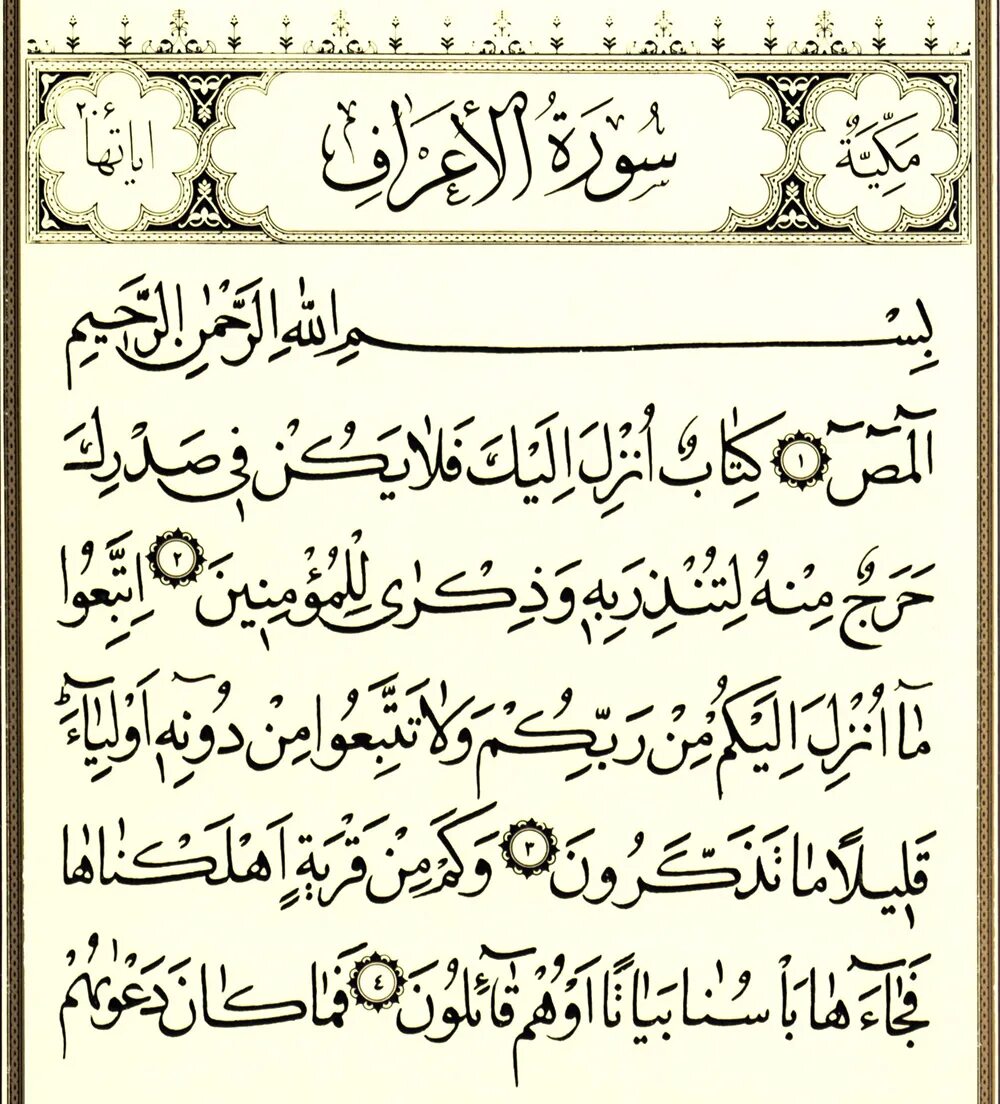 مَكِّيَّةٌ
سُورَةُ الْأَعْرَافِ
اياتها ٢٠٦
بِسْمِ اللّٰهِ الرَّحْمٰنِ الرَّحٖيمِ
الٓمٓصٓ ١ كِتَابٌ اُنْزِلَ اِلَيْكَ فَلَا يَكُنْ فٖي صَدْرِكَ
حَرَجٌ مِنْهُ لِتُنْذِرَ بِهٖ وَذِكْرٰى لِلْمُؤْمِنٖينَ ٢ اِتَّبِعُوا
مَٓا اُنْزِلَ اِلَيْكُمْ مِنْ رَبِّكُمْ وَلَا تَتَّبِعُوا مِنْ دُونِهٖٓ اَوْلِيَٓاءَؕ
قَلٖيلًا مَا تَذَكَّرُونَ ٣ وَكَمْ مِنْ قَرْيَةٍ اَهْلَكْنَاهَا
فَجَٓاءَهَا بَأْسُنَا بَيَاتًا اَوْ هُمْ قَٓائِلُونَ ٤ فَمَا كَانَ دَعْوٰيهُمْ